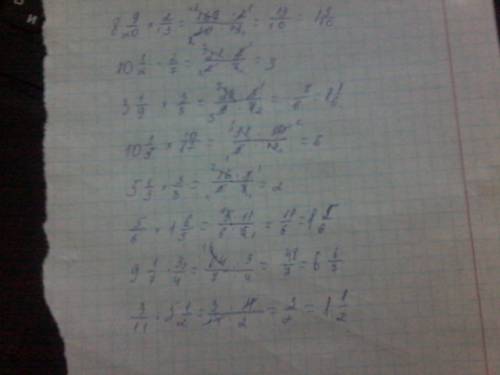 8 9/20 × 2/13 = 169 · 2 / 20 · 13 = 13/10 = 1 3/10
10 1/2 · 2/7 = 21 · 2 / 2 · 7 = 3
3 1/9 × 3/8 = 28 · 3 / 9 · 8 = 7/6 = 1 1/6
10 1/5 × 10/17 = 51 · 10 / 5 · 17 = 6
5 1/3 × 3/8 = 16 · 3 / 3 · 8 = 2
5/6 × 1 6/5 = 5 · 11 / 6 · 5 = 11/6 = 1 5/6
9 1/7 · 3/4 = 64 · 3 / 7 · 4 = 48/7 = 6 6/7
3/11 · 5 1/2 = 3 · 11 / 11 · 2 = 3/2 = 1 1/2